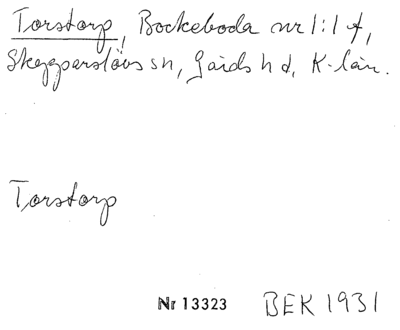 Torstorp, Bockeboda nr 1:1 f,
Skepparslövs sn, Gärds hd, K-län.
Torstorp
Nr 13323 BEK 1931